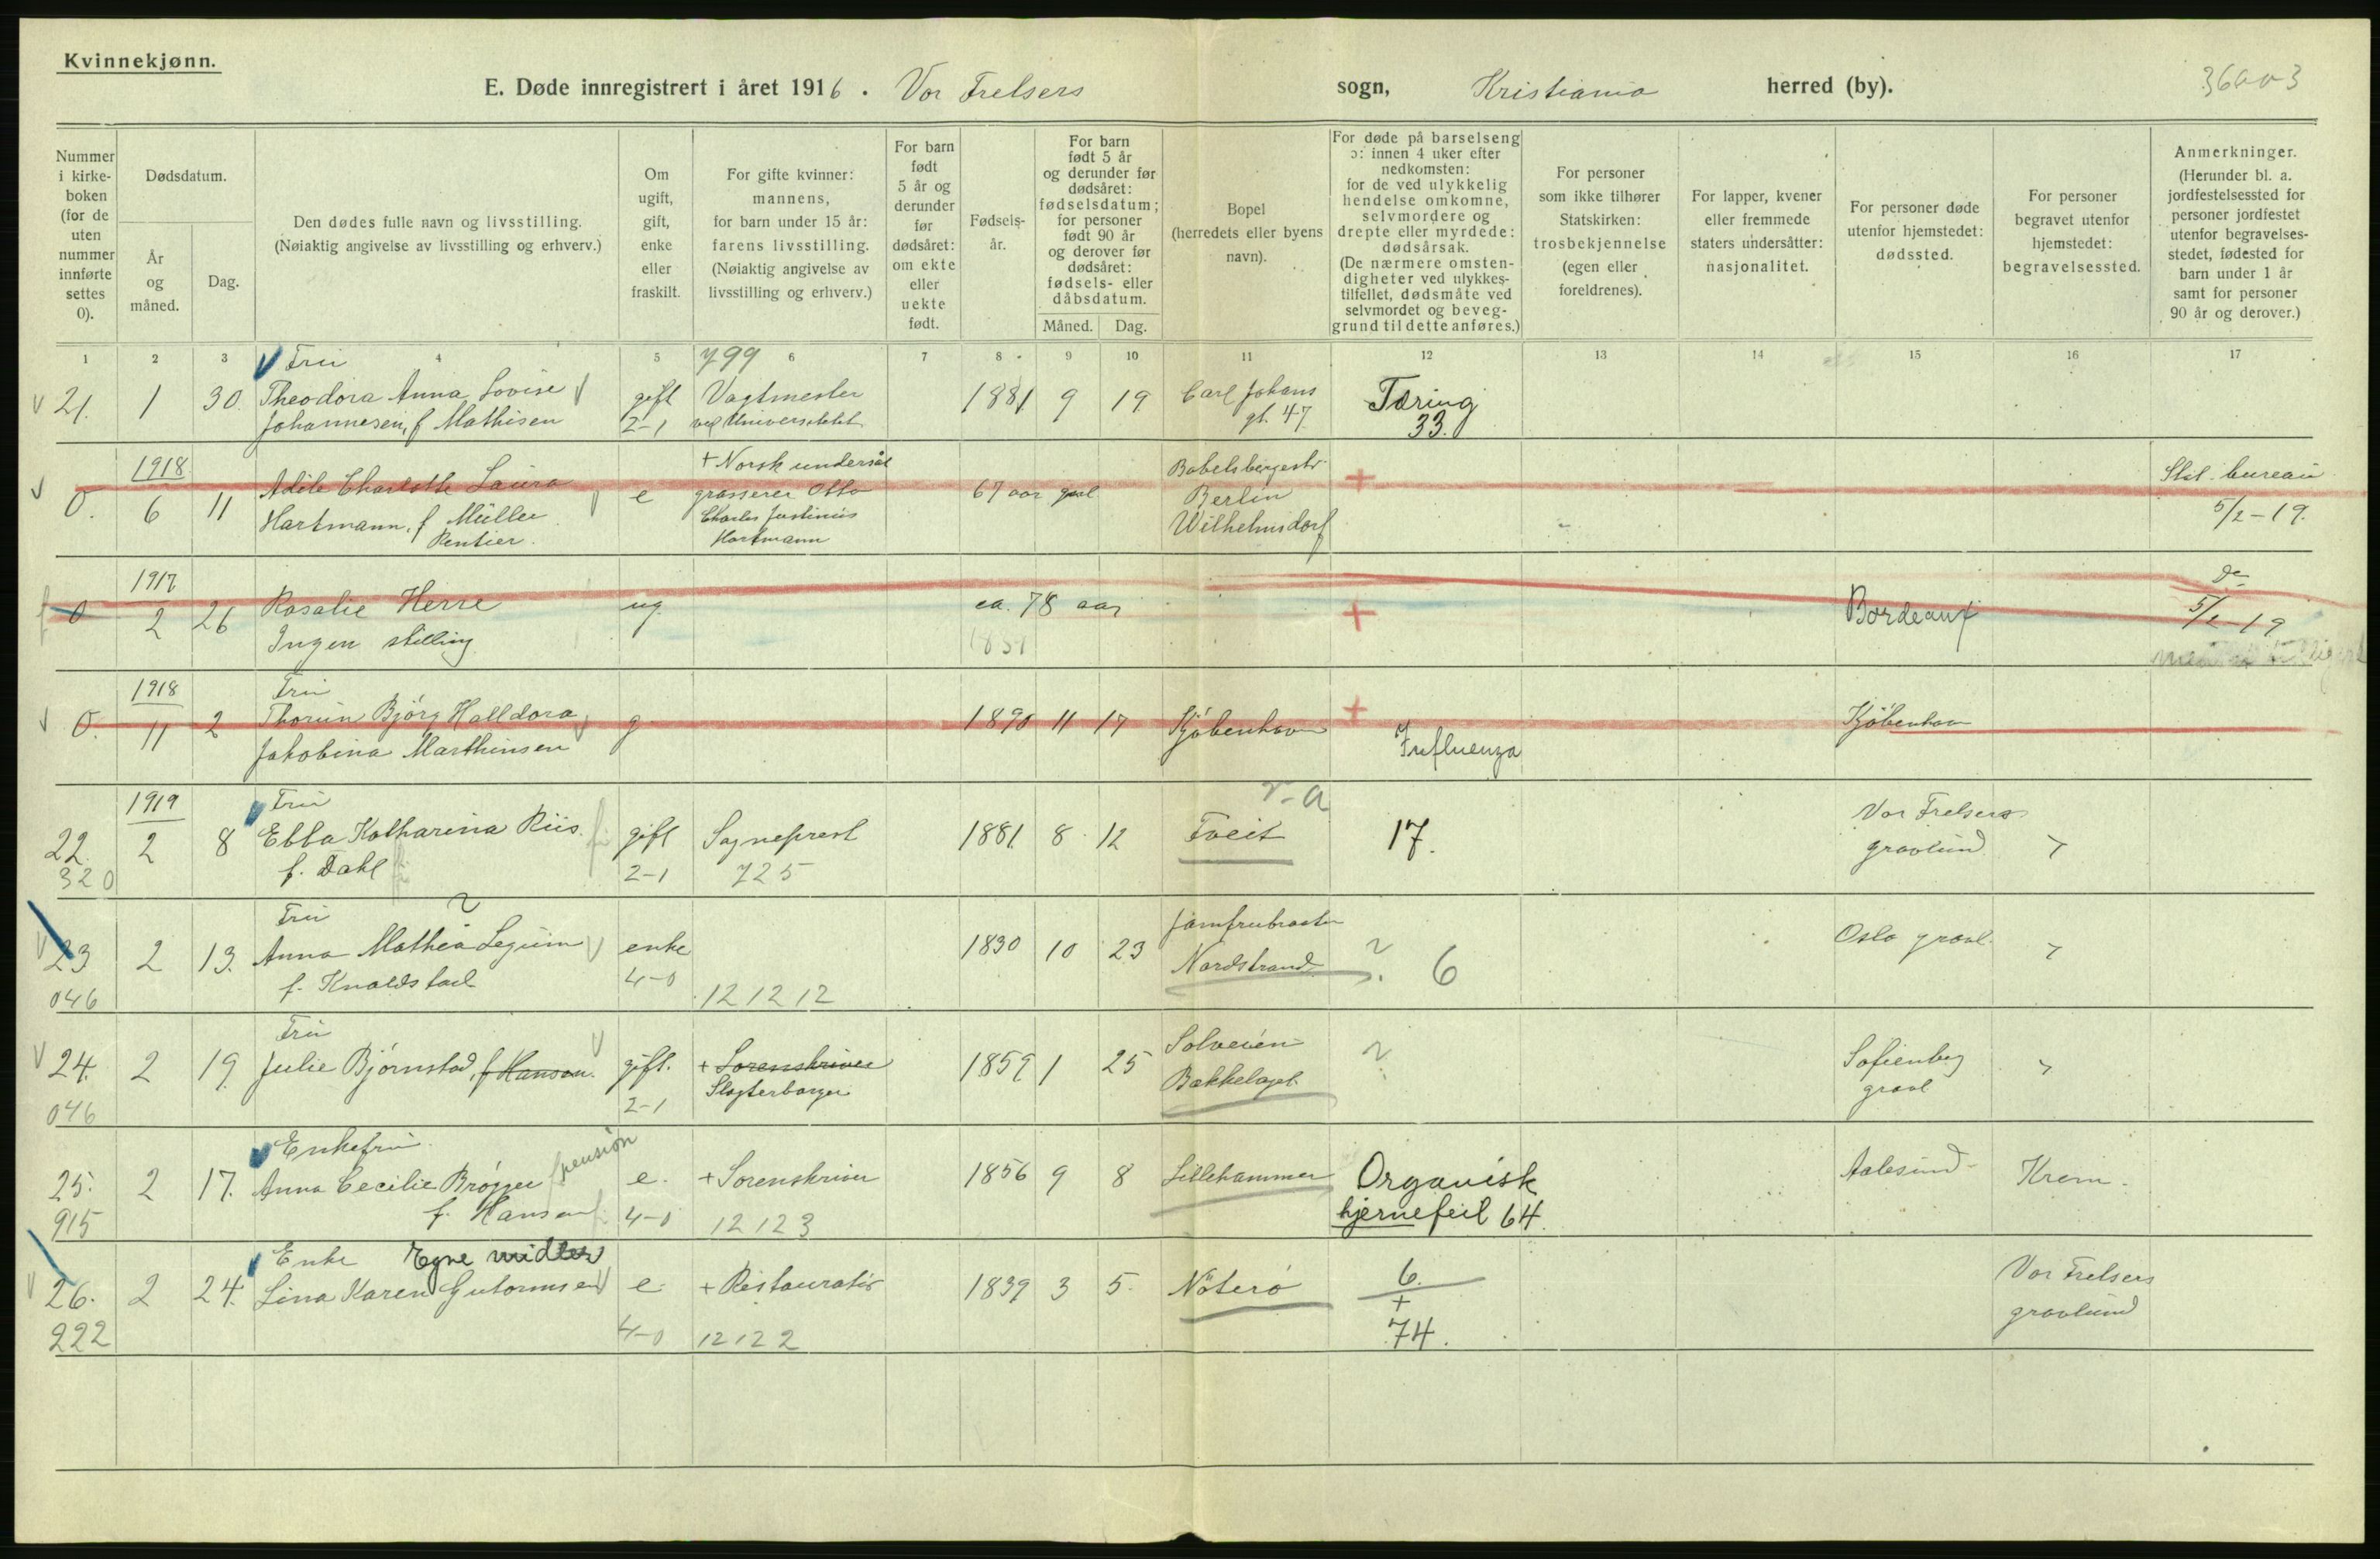 Kvinnekjønn.
E. Døde innregistrert i året 1916. Vor Frelsers sogn, Kristiania herred (by).
Nummer i kirke-boken (for de uten nummer innførte settes 0).
Dødsdatum.
År og måned.
Dag.
Den dødes fulle navn og livsstilling.
(Nøiaktig angivelse av livsstilling og erhverv.)
Om ugift, gift, enke eller fraskilt.
For gifte kvinner: mannens, for barn under 15 år: farens livsstilling. (Nøiaktig angivelse av livsstilling og erhverv.)
For barn født 5 år og derunder før dødsåret: om ekte eller uekte født.
Fødsels-år.
For barn født 5 år og derunder før dødsåret: fødselsdatum; for personer født 90 år og derover før dødsåret: fødsels- eller dåbsdatum.
Måned. Dag.
Bopel (herredets eller byens navn).
For døde på barselseng ɔ: innen 4 uker efter nedkomsten: for de ved ulykkelig hendelse omkomne, selvmordere og drepte eller myrdede: dødsårsak. (De nærmere omsten-digheter ved ulykkes-tilfellet, dødsmåte ved selvmordet og beveg-grund til dette anføres.)
For personer som ikke tilhører Statskirken: trosbekjennelse (egen eller foreldrenes).
For lapper, kvener eller fremmede staters undersåtter: nasjonalitet.
For personer døde utenfor hjemstedet: dødssted.
For personer begravet utenfor hjemstedet: begravelsessted.
Anmerkninger. (Herunder bl. a. jordfestelsessted for personer jordfestet utenfor begravelses-stedet, fødested for barn under 1 år samt for personer 90 år og derover.)
1 2 3 4 5 6 7 8 9 10 11 12 13 14 15 16 17
Fru 799
21. 1 30. Theodora Anna Lovise gift Vagtmester 1881 9 19 Carl Johans Tæring
Johannesen, f Mathisen 2-1 ved Universitetet gt. 47 33.
1918 + Norsk undersåt Babelsbergerstr Stat. bureau
0. 6 11 Adele Charlotte Laura e grosserer Otto 67 aar gml Berlin 5/2-19.
Hartmann, f Müller Charles Justinius Wilhelmsdorf
Rentier. Hartmann
1917
0 2 26 Rosalie Herre ug ca. 78 aar Bordeaux 5/2-19
Ingen stilling
1918 Fru
0. 11 2 Thorun Bjørg Halldora g 1890 11 17 Kjøbenhavn Kjøbenhavn
Jakobina Marthinsen Influenza
1919 Fru
22. 2 8 Ebba Katharina Riis gift Sogneprest 1881 8 12 Tveit 17. Vor Frelsers gravlund
320 f. Dahl 2-1 725
Fru Jomfrubraaten
23 2 13. Anna Mathea Legum enke 1830 10 23 Nordstrand ? 6 Oslo gravl.
046 f. Knoldstad 4-0 121212
Fru Solveien
24. 2 19. Julie Bjørnstad, f Hanson. gift. + Sorenskriver 1859 1 25 Bækkelaget ? Sofienberg gravl
046 2-1 Slagterborger
Enkefru pension
25. 2 17. Anna Cecilie Brøgger e. + Sorenskriver 1856 9 8 Lillehammer Organisk Aalesund Krem.
915 f. Hansen 4-0 12123 hjernefeil 64.
Enke Egne midler
26. 2 24. Lina Karen Gutormsen e + Restauratør 1839 3 5. Nøterø 6. Vor Frelsers gravlund
222 4-0 12122 + 74.